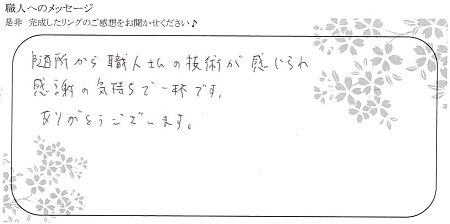 職人へのメッセージ
是非 完成したリングのご感想をお聞かせください♪
随所から職人さんの技術が感じられ
感謝の気持ちで一杯です。
ありがとうございます。